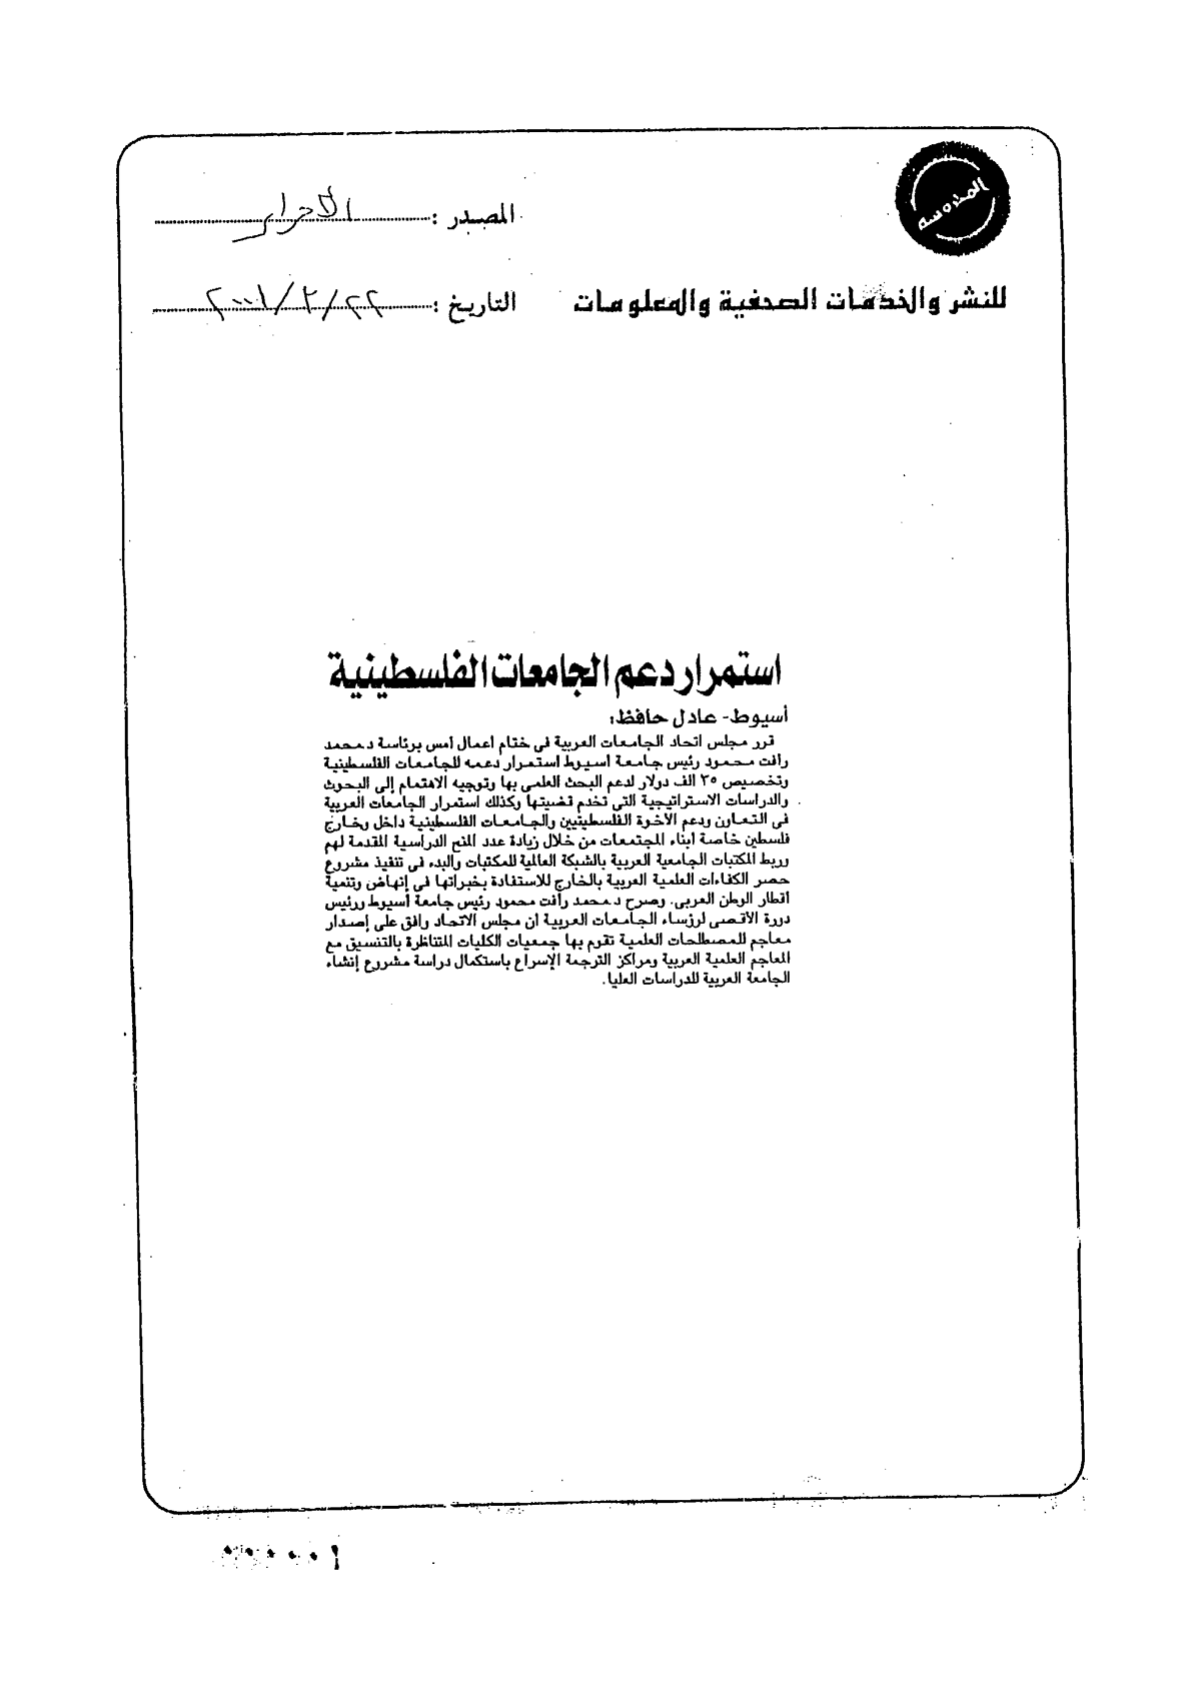 المحروسة
المصدر : الاحرار
للنشر والخدمات الصحفية والمعلومات
التاريخ : ٢٢/٣/٢٠٠١
استمرار دعم الجامعات الفلسطينية
أسيوط- عادل حافظ:
قرر مجلس اتحاد الجامعات العربية فى ختام أعمال أمس برئاسة د.محمد
رأفت محمود رئيس جامعة اسيوط استمرار دعمه للجامعات الفلسطينية
وتخصيص ٢٥ الف دولار لدعم البحث العلمى بها وتوجيه الاهتمام إلى البحوث
والدراسات الاستراتيجية التى تخدم قضيتها وكذلك استمرار الجامعات العربية
فى التعاون ودعم الأخوة الفلسطينيين والجامعات الفلسطينية داخل وخارج
فلسطين خاصة أبناء المجتمعات من خلال زيادة عدد المنح الدراسية المقدمة لهم
وربط المكتبات الجامعية العربية بالشبكة العالمية للمكتبات والبدء فى تنفيذ مشروع
حصر الكفاءات العلمية العربية بالخارج للاستفادة بخبراتها فى إنهاض وتنمية
أقطار الوطن العربى. وصرح د.محمد رأفت محمود رئيس جامعة أسيوط ورئيس
دورة الأقصى لرؤساء الجامعات العربية أن مجلس الاتحاد وافق على إصدار
معاجم للمصطلحات العلمية تقوم بها جمعيات الكليات المتناظرة بالتنسيق مع
المعاجم العلمية العربية ومراكز الترجمة الإسراع باستكمال دراسة مشروع إنشاء
الجامعة العربية للدراسات العليا.